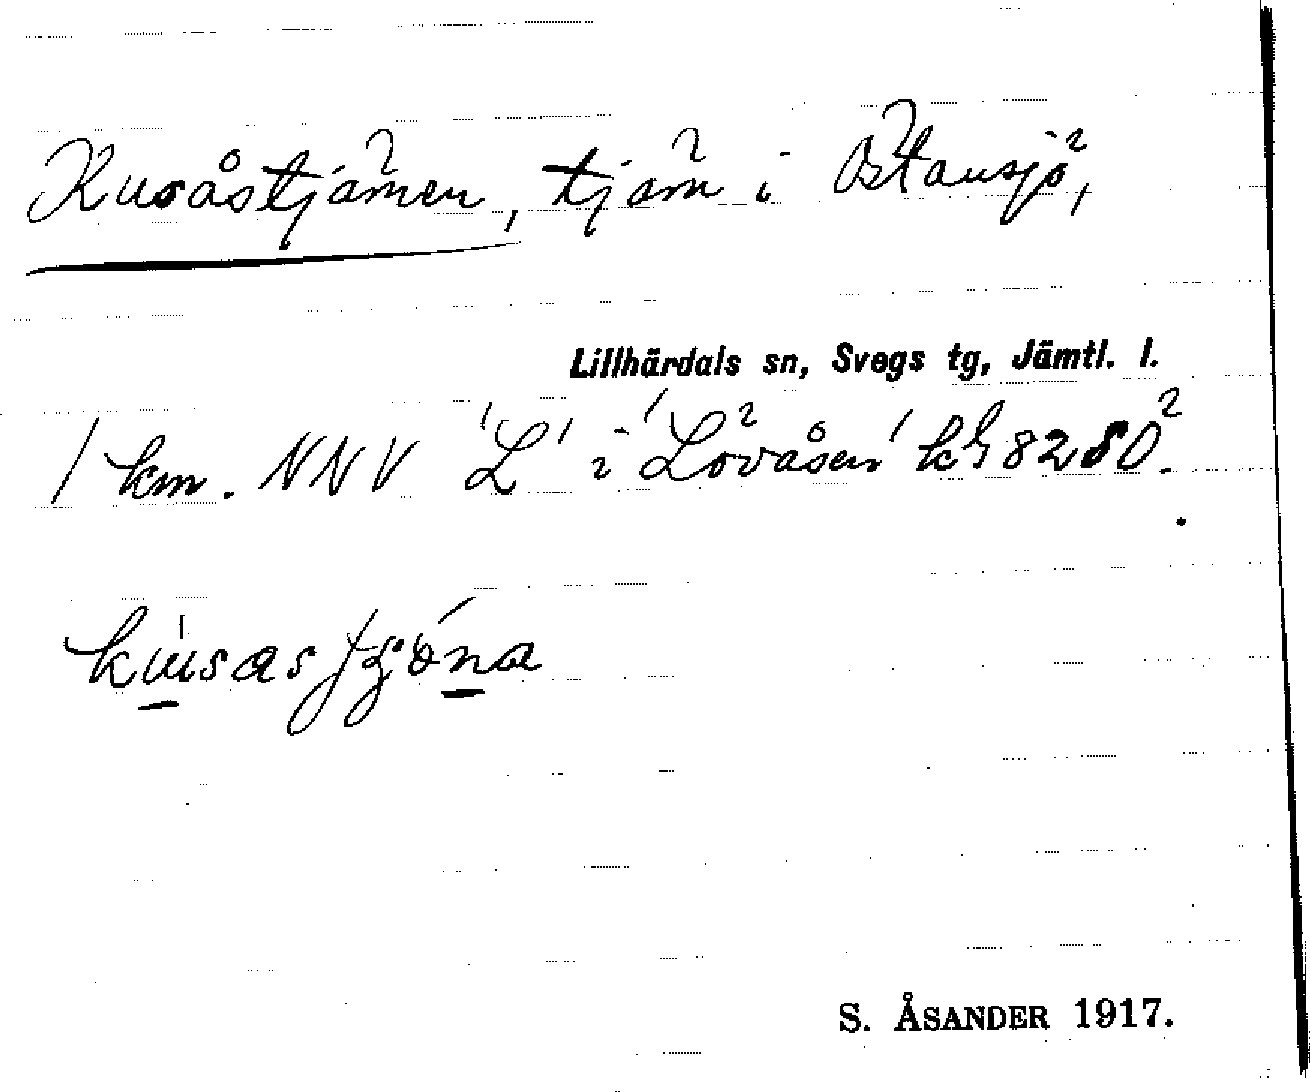 Kusåstjärnen, tjärn i Östansjö,
Lillhärdals sn, Svegs tg, Jämtl. l.
1 km. NNV 'L' i 'Lövåsen' kbl 82 SO.
kusastjöna
S. ÅSANDER 1917.